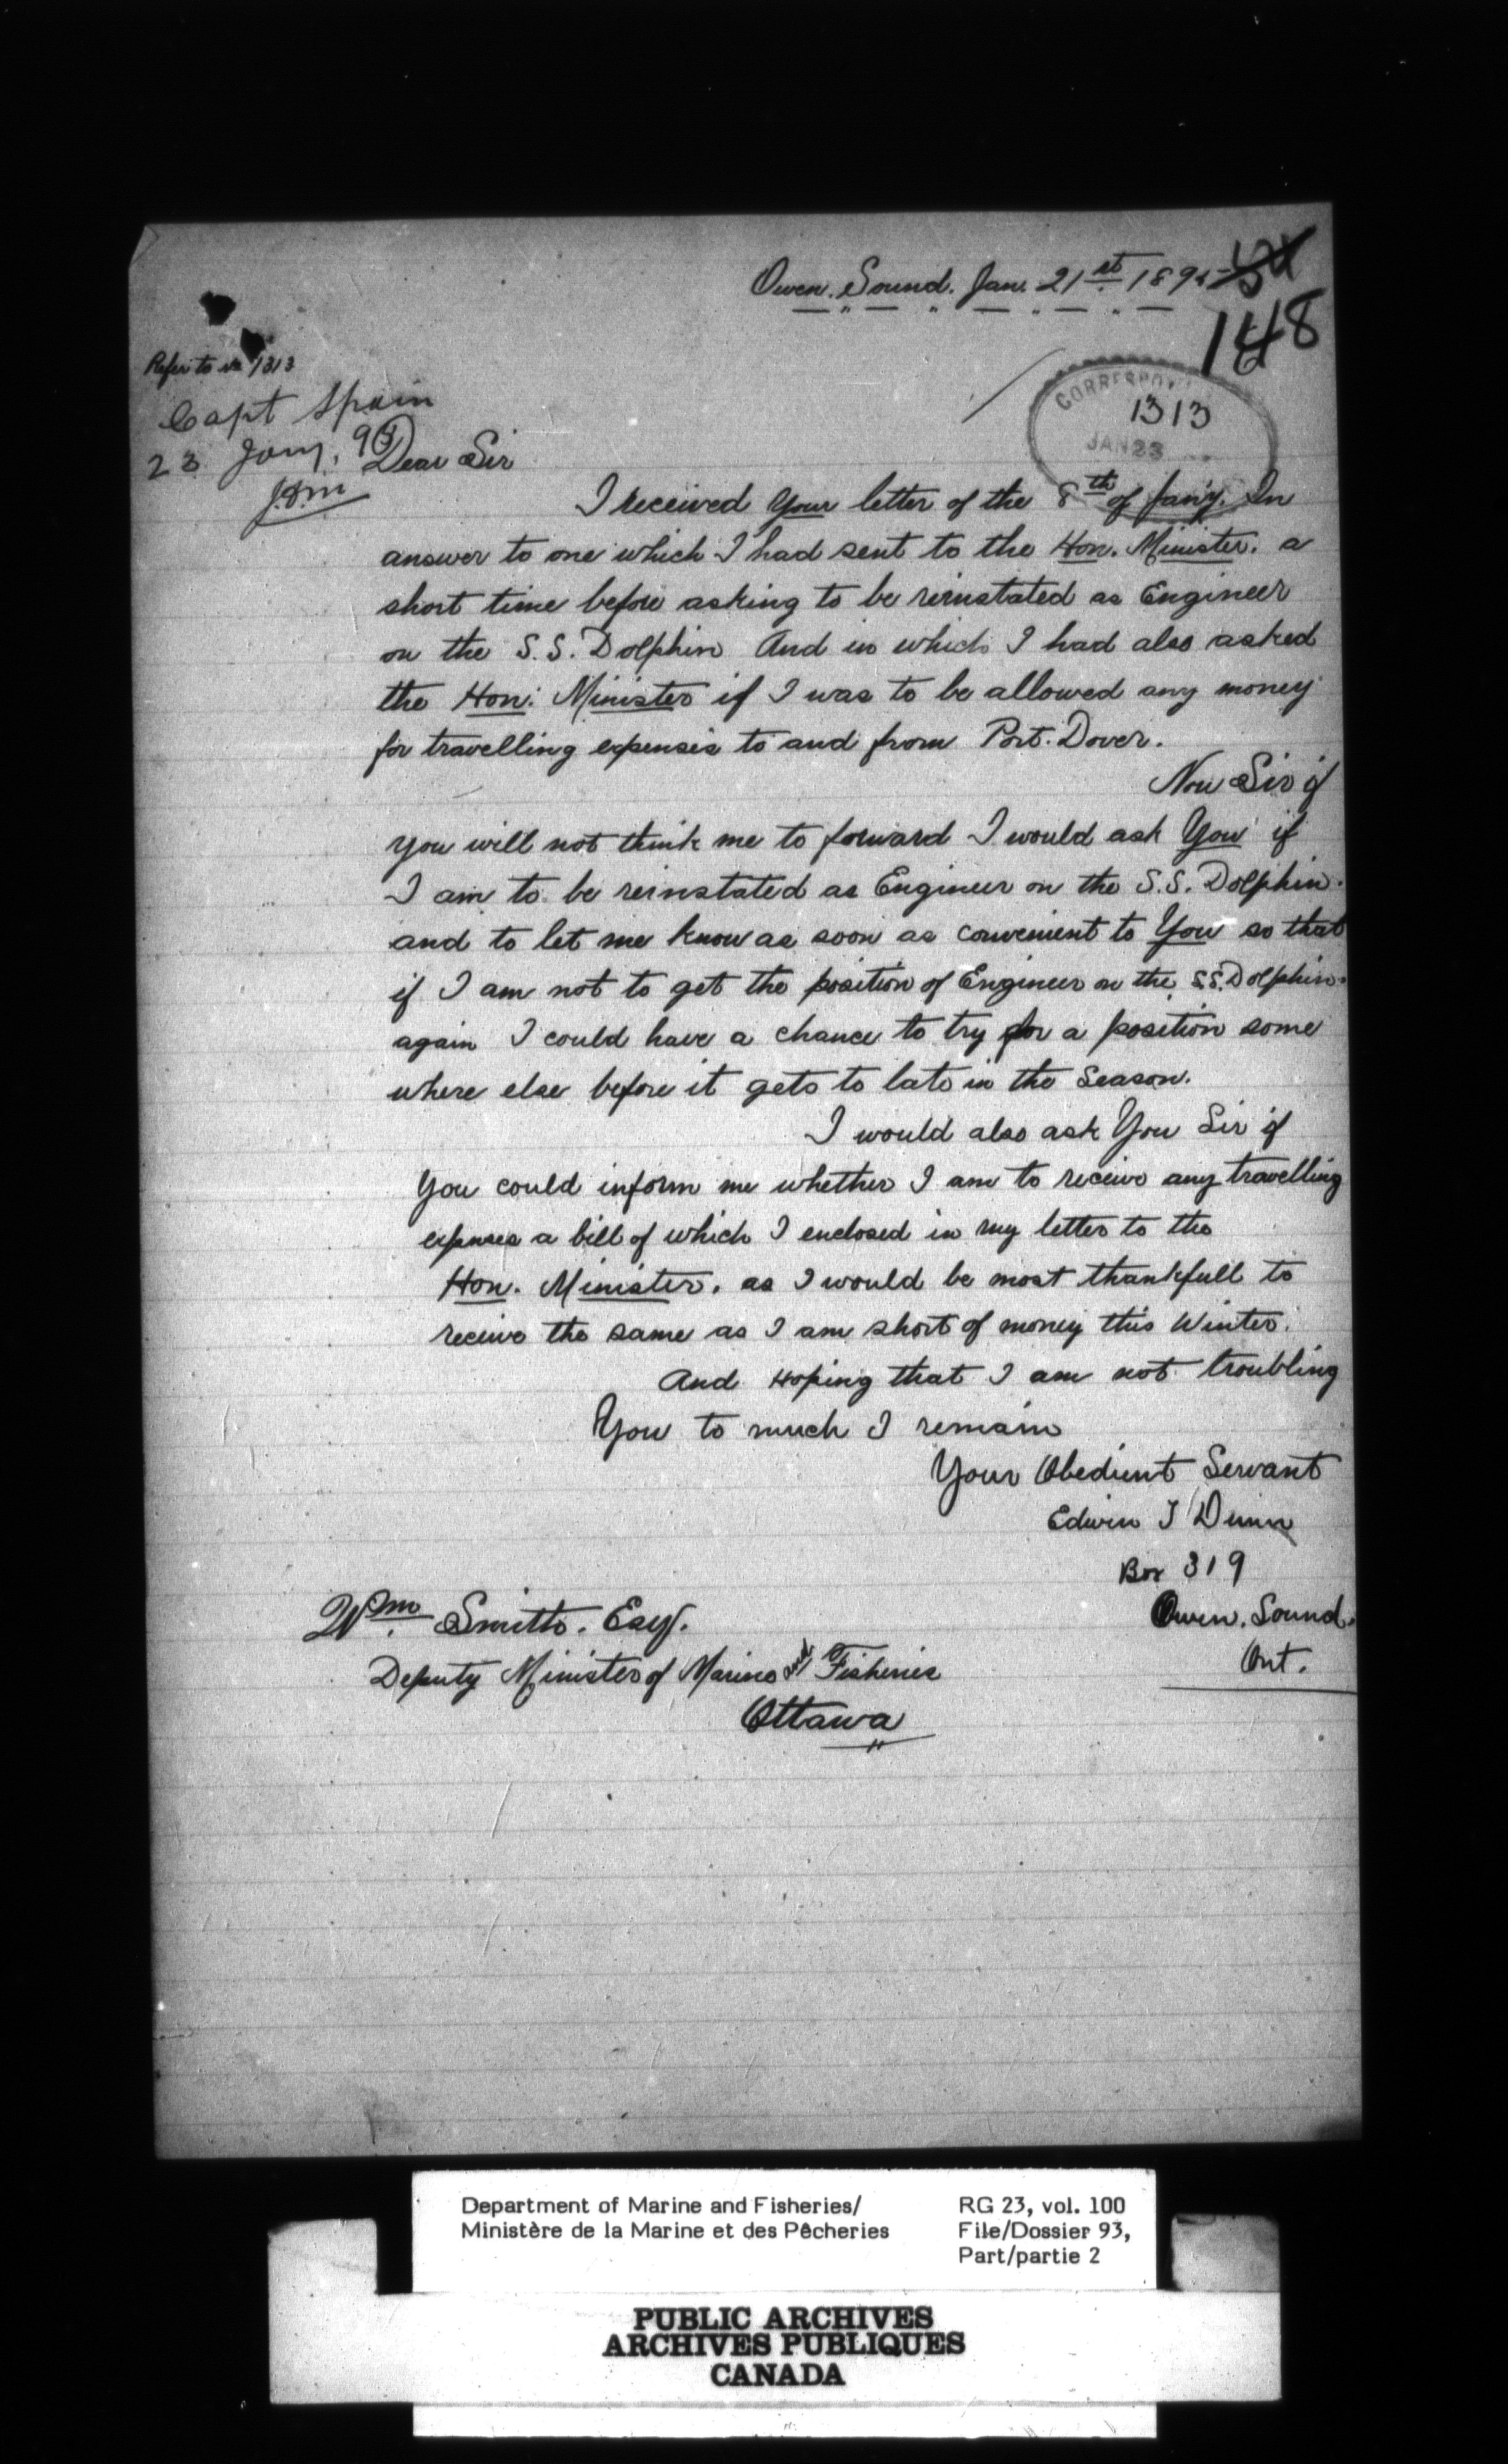 Owen. Sound. Jan. 21st 1895
148
Refer to no 1313
Capt Spain
23 Jany, 95
CORRESPON
1313
JAN 23
Dear Sir
I received Your letter of the 8th of Jan'y. In
answer to one which I had sent to the Hon. Minister. a
short time before asking to be reinstated as Engineer
on the S.S. Dolphin And in which I had also asked
the Hon: Minister if I was to be allowed any money
for travelling expenses to and from Port. Dover.
Now Sir if
you will not think me to forward I would ask You if
I am to be reinstated as Engineer on the S.S. Dolphin.
and to let me know as soon as convenient to You so that
if I am not to get the position of Engineer on the S.S. Dolphin.
again I could have a chance to try for a position some
where else before it gets to late in the Season.
I would also ask You Sir if
You could inform me whether I am to receive any travelling
expenses a bill of which I enclosed in my letter to the
Hon. Minister. as I would be most thankfull to
receive the same as I am short of money this Winter.
And Hoping that I am not troubling
You to much I remain
Your Obedient Servant
Edwin J Dunn
Box 319
Owen. Sound.
Ont.
Wm Smith. Esq.
Deputy Minister of Marine and Fisheries
Ottawa
Department of Marine and Fisheries/
Ministère de la Marine et des Pêcheries
RG 23, vol. 100
File/Dossier 93,
Part/partie 2
PUBLIC ARCHIVES
ARCHIVES PUBLIQUES
CANADA